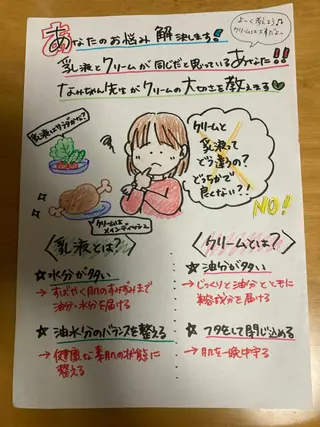 よーく教えよう♪
クリームは大事だよ〜
あなたのお悩み解決します!
乳液とクリームが同じだと思っているあなた!!
なみちゃん先生がクリームの大切さを教えます
乳液はサラダかな?
クリームは
メインディッシュ
クリームと
乳液って
どう違うの?
どっちかで
良くない?!
NO!
乳液とは?
☆水分が多い
→すばやく肌のすみずみまで
油分・水分を届ける
☆油水分のバランスを整える
→健康な素肌の状態に
整える
クリームとは?
☆油分が多い
→じっくりと油分とともに
美容成分を届ける
☆フタをして閉じ込める
→肌を一晩中守る